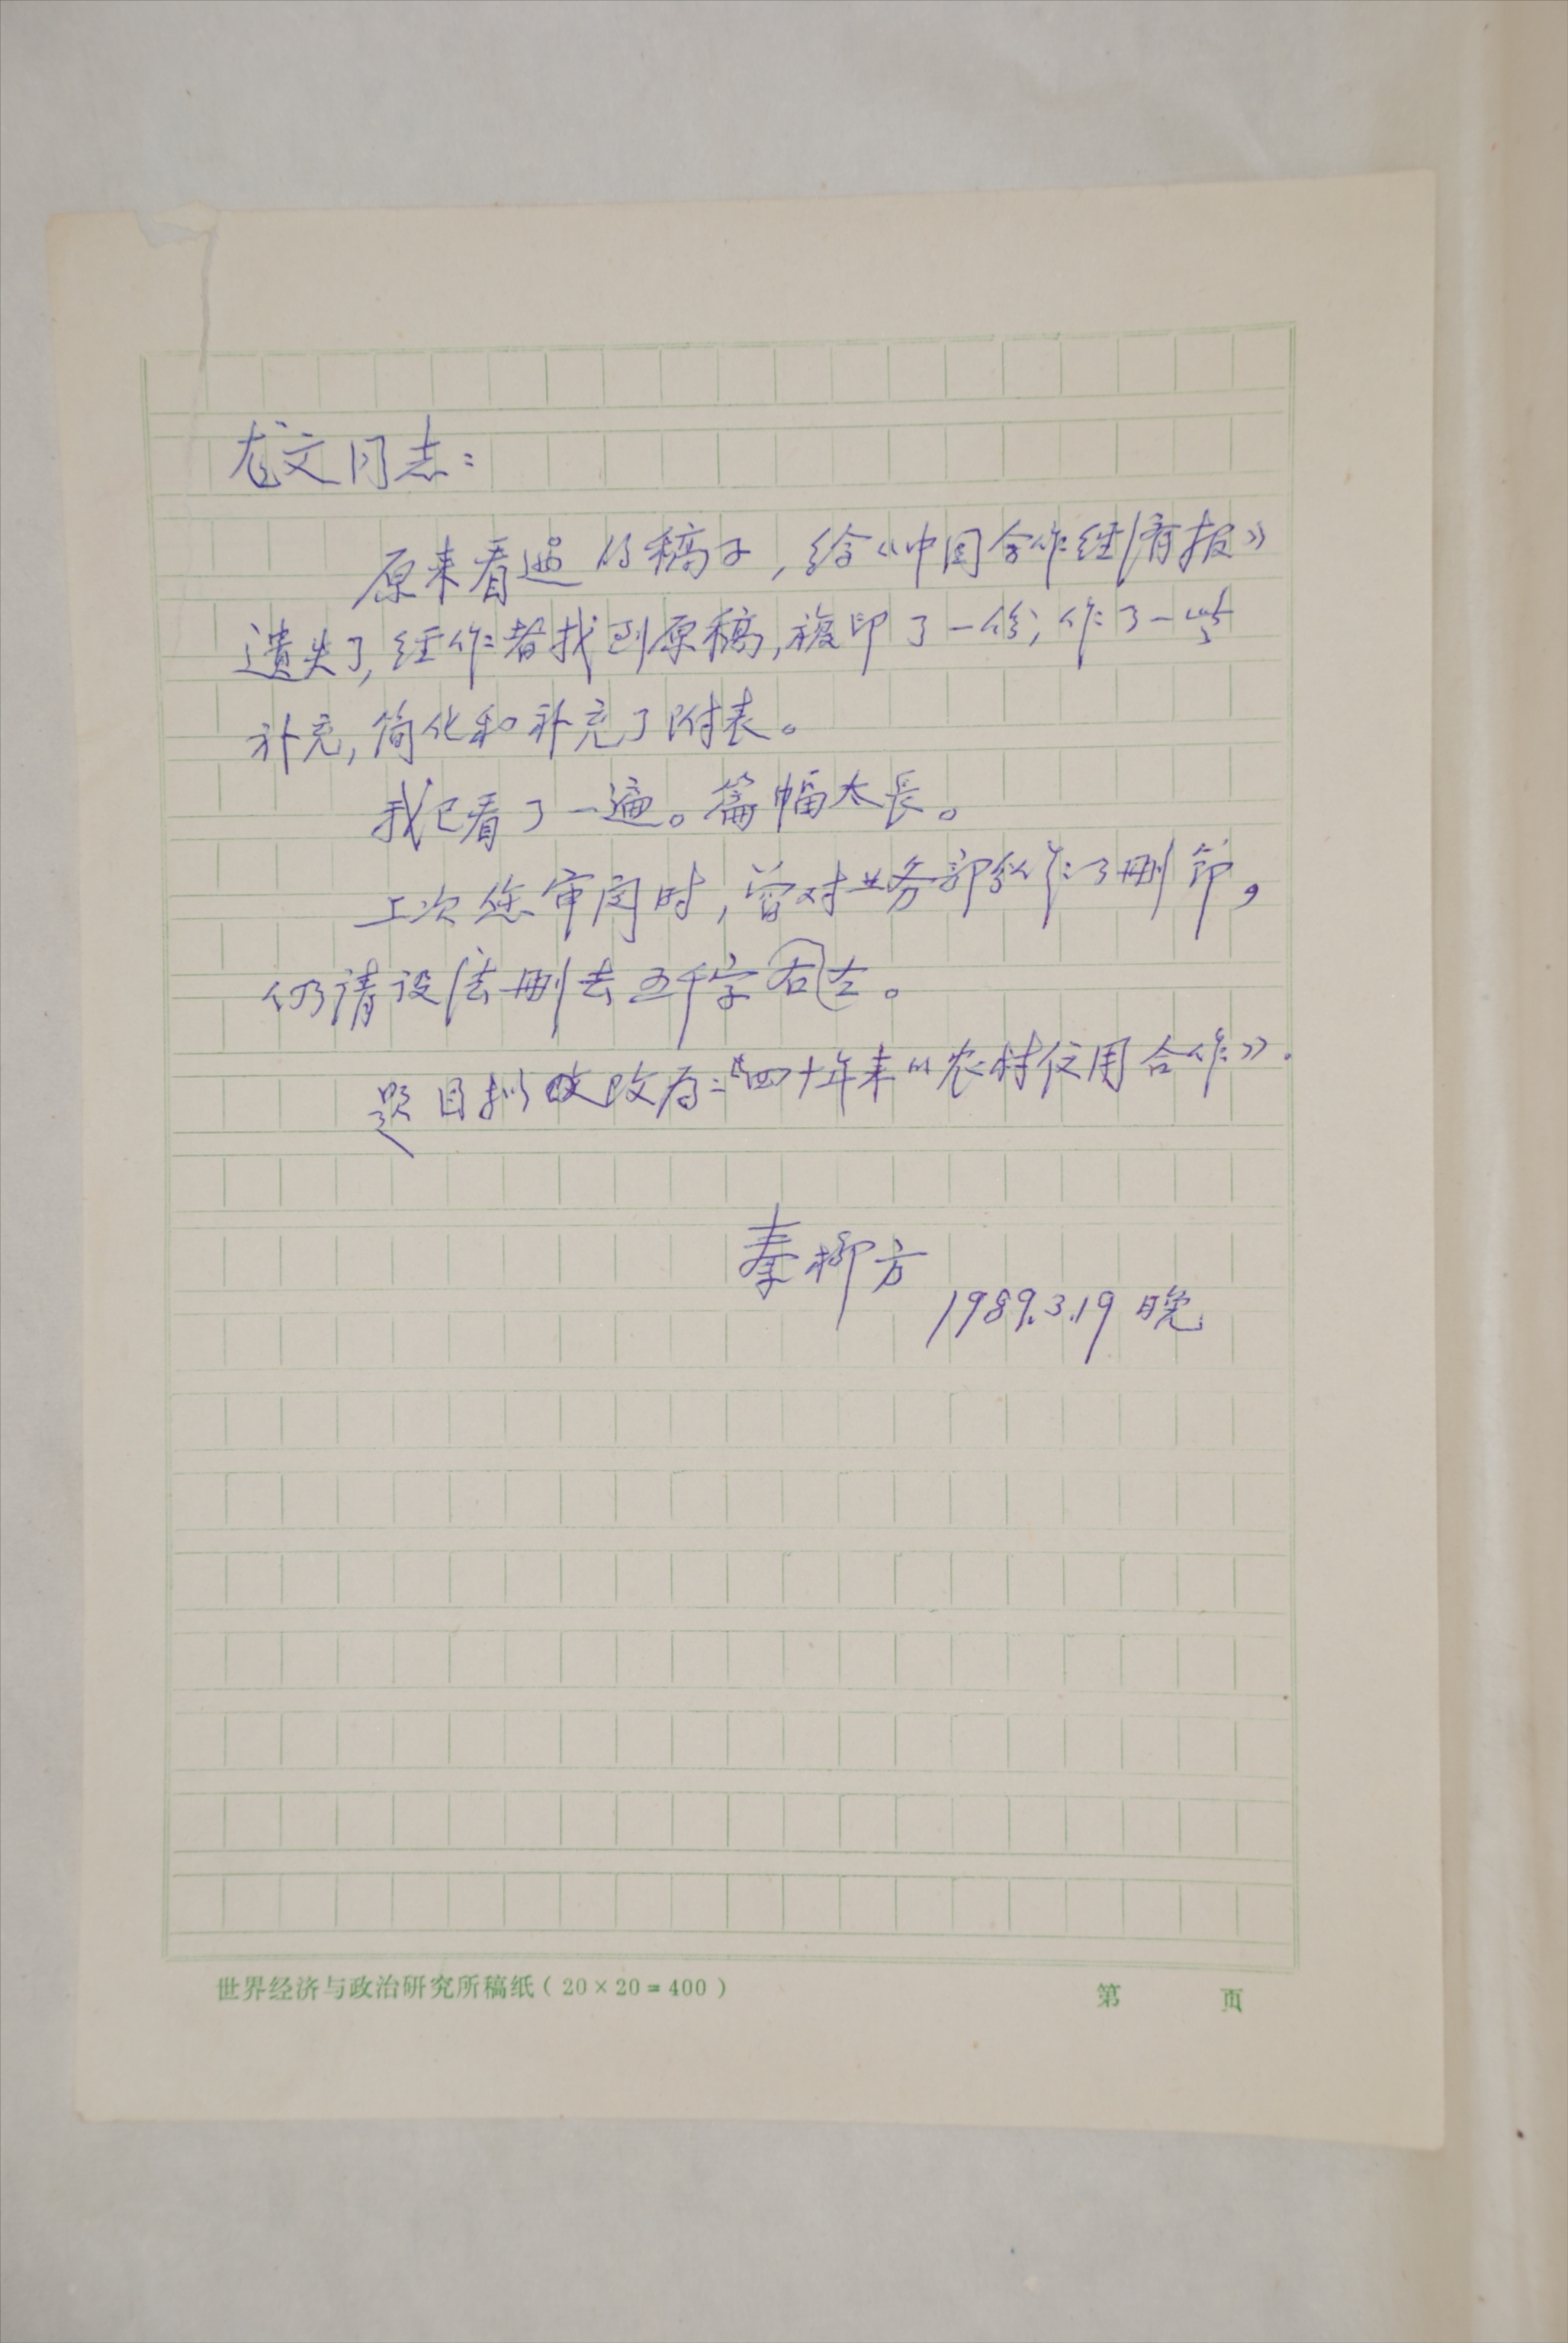 龙文同志：
原来看过的稿子，给《中国合作经济报》
遗失了，经作者找到原稿，複印了一份；作了一些
补充，简化和补充了附表。
我已看了一遍。篇幅太长。
上次您审阅时，曾对业务部分作了删节，
仍请设法删去五千字右左。
题目拟改为：《四十年来的农村信用合作》。
秦柳方
1989.3.19 晚
世界经济与政治研究所稿纸（20×20＝400）
第 页